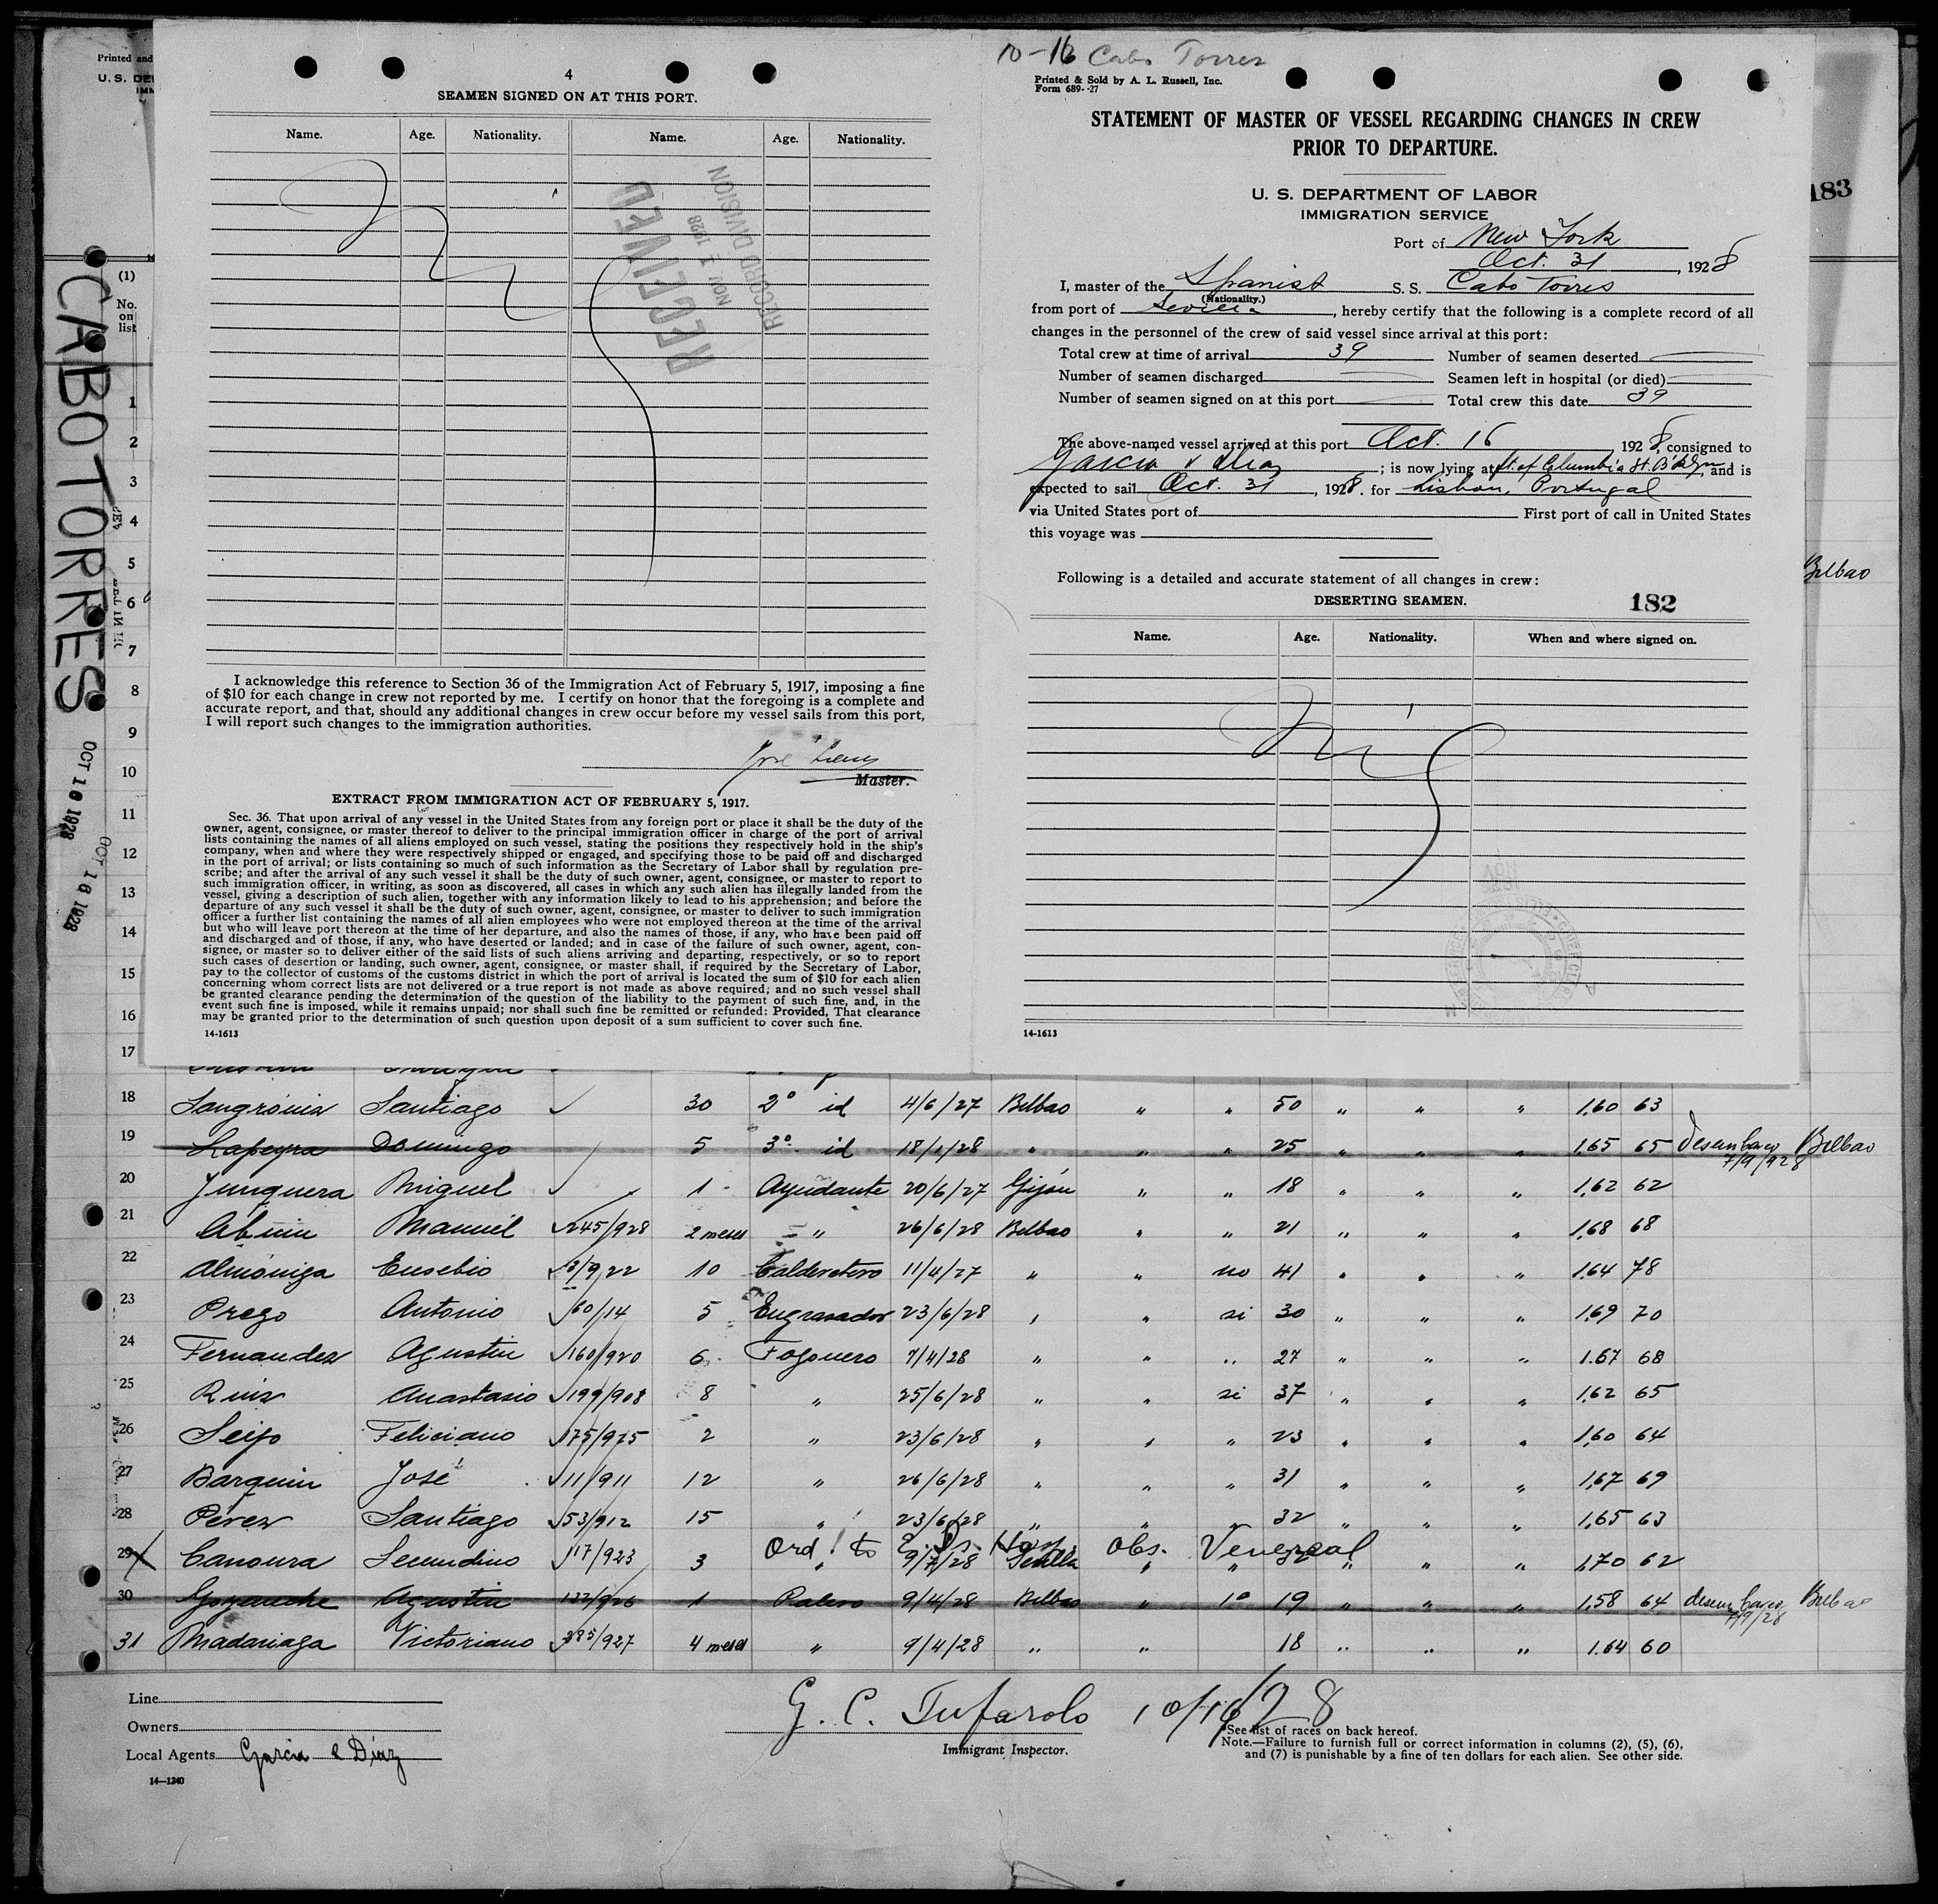 Printed and
U. S. DE
IMM
4
SEAMEN SIGNED ON AT THIS PORT.
Name. Age. Nationality. Name. Age. Nationality.
Nil
RECEIVED
NOV 1 1928
RECORD DIVISION
I acknowledge this reference to Section 36 of the Immigration Act of February 5, 1917, imposing a fine
of $10 for each change in crew not reported by me. I certify on honor that the foregoing is a complete and
accurate report, and that, should any additional changes in crew occur before my vessel sails from this port,
I will report such changes to the immigration authorities.
Master.
EXTRACT FROM IMMIGRATION ACT OF FEBRUARY 5, 1917.
Sec. 36. That upon arrival of any vessel in the United States from any foreign port or place it shall be the duty of the
owner, agent, consignee, or master thereof to deliver to the principal immigration officer in charge of the port of arrival
lists containing the names of all aliens employed on such vessel, stating the positions they respectively hold in the ship's
company, when and where they were respectively shipped or engaged, and specifying those to be paid off and discharged
in the port of arrival; or lists containing so much of such information as the Secretary of Labor shall by regulation pre-
scribe; and after the arrival of any such vessel it shall be the duty of such owner, agent, consignee, or master to report to
such immigration officer, in writing, as soon as discovered, all cases in which any such alien has illegally landed from the
vessel, giving a description of such alien, together with any information likely to lead to his apprehension; and before the
departure of any such vessel it shall be the duty of such owner, agent, consignee, or master to deliver to such immigration
officer a further list containing the names of all alien employees who were not employed thereon at the time of the arrival
but who will leave port thereon at the time of her departure, and also the names of those, if any, who have been paid off
and discharged and of those, if any, who have deserted or landed; and in case of the failure of such owner, agent, con-
signee, or master so to deliver either of the said lists of such aliens arriving and departing, respectively, or so to report
such cases of desertion or landing, such owner, agent, consignee, or master shall, if required by the Secretary of Labor,
pay to the collector of customs of the customs district in which the port of arrival is located the sum of $10 for each alien
concerning whom correct lists are not delivered or a true report is not made as above required; and no such vessel shall
be granted clearance pending the determination of the question of the liability to the payment of such fine, and, in the
event such fine is imposed, while it remains unpaid; nor shall such fine be remitted or refunded: Provided, That clearance
may be granted prior to the determination of such question upon deposit of a sum sufficient to cover such fine.
14-1613
10-16 Cabo Torres
Printed & Sold by A. L. Russell, Inc.
Form 689--27
STATEMENT OF MASTER OF VESSEL REGARDING CHANGES IN CREW
PRIOR TO DEPARTURE.
U. S. DEPARTMENT OF LABOR
IMMIGRATION SERVICE
Port of New York
Oct. 31, 1928
I, master of the Spanish S. S. Cabo Torres
(Nationality.)
from port of Sevilla, hereby certify that the following is a complete record of all
changes in the personnel of the crew of said vessel since arrival at this port:
Total crew at time of arrival 39 Number of seamen deserted
Number of seamen discharged Seamen left in hospital (or died)
Number of seamen signed on at this port Total crew this date 39
The above-named vessel arrived at this port Oct. 16 1928, consigned to
Garcia & Diaz; is now lying at ft. of Columbia St. B'klyn, and is
expected to sail Oct. 31, 1928. for Lisbon, Portugal
via United States port of First port of call in United States
this voyage was
Following is a detailed and accurate statement of all changes in crew:
DESERTING SEAMEN. 182
Name. Age. Nationality. When and where signed on.
Nil
14-1613
183
Bilbao
CABO TORRES
OCT 16 1928
OCT 16 1928
(1)
No.
on
list
1
2
3
4
5
6
7
8
9
10
11
12
13
14
15
16
17
18 Sangroniz Santiago ✓ 30 2º id 4/6/27 Bilbao " " 50 " " " 1,60 63
19 Lapeyra Domingo 5 3º id 18/1/28 " " " 25 " " " 1,65 65 desembarco Bilbao
7/9/928
20 Junquera Miguel ✓ 1 Ayudante 20/6/27 Gijón " " 18 " " " 1,62 62
21 Abuin Manuel ✓245/928 2 meses " 26/6/28 Bilbao " " 21 " " " 1,68 68
22 Almóniga Eusebio 10 Calderetero 11/4/27 " " no 41 " " " 1,64 78
23 Prego Antonio ✓60/14 5 Engrasador 23/6/28 " " si 30 " " " 1,69 70
24 Fernandez Agustin ✓160/920 6 Fogonero 9/4/28 " " " 27 " " " 1.67 68
25 Ruiz Anastasio ✓199/908 8 " 25/6/28 " " si 37 " " " 1,62 65
26 Seijo Feliciano ✓175/975 2 " 23/6/28 " " " 23 " " " 1,60 64
27 Barquin José ✓11/911 12 " 26/6/28 " " " 31 " " " 1,67 69
28 Pérez Santiago ✓53/912 15 " 23/6/28 " " " 32 " " " 1,65 63
Ord. to E. Is. Hosp. Obs. Venereal
29 X Canoura Secundino ✓17/923 3 " 9/7/28 Sevilla " " " " " 1,70 62
30 Goyeneche Agustin 132/926 1 Palero 9/4/28 Bilbao " 1º 19 " " " 1,58 64 desembarco Bilbao
7/9/28
31 Madariaga Victoriano ✓385/927 4 meses " 9/4/28 " " 18 " " " 1.64 60
Line
Owners
Local Agents Garcia & Diaz
14—1240
G. C. Tufarolo 10/16/28
Immigrant Inspector.
*See list of races on back hereof.
Note.—Failure to furnish full or correct information in columns (2), (5), (6),
and (7) is punishable by a fine of ten dollars for each alien. See other side.